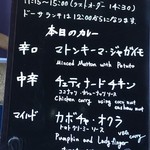 11:15~15:00（ラストオーダー14:30）
ドーサランチは12:00からになります。
本日のカレー
辛口 マトンキーマ・ジャガイモ
Minced Mutton with Potato
中辛 チェティナードチキン
ココナッツ・カシューナッツソース
Chicken curry using coconut
and cashew nut
マイルド カボチャ・オクラ
トマトクリーミーソース
veg curry
Pumpkin and Lady finger